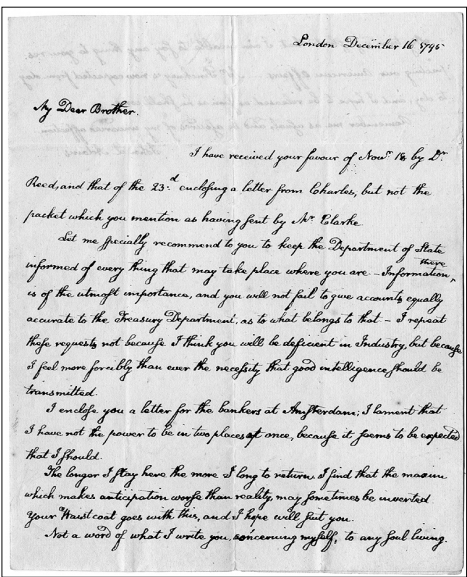 London December 16 1795
My Dear Brother.
I have received your favour of Novr 18 by Dr
Reed, and that of the 23.d enclosing a letter from Charles, but not the
packet which you mention as having sent by Mr Clarke
Let me specially recommend to you to keep the Department of State
there
informed of every thing that may take place where you are – Information,
is of the utmost importance, and you will not fail to give accounts equally
accurate to the Treasury Department, as to what belongs to that – I repeat
these requests not because I think you will be deficient in Industry, but because
I feel more forcibly than ever the necessity that good intelligence should be
transmitted.
I enclose you a letter for the bankers at Amsterdam; I lament that
I have not the power to be in two places at once, because it seems to be expected
that I should.
The longer I stay here the more I long to return. I find that the maxim
which makes anticipation worse than reality, may sometimes be inverted
Your Waistcoat goes with this, and I hope will suit you.
Not a word of what I write you, concerning myself, to any soul living.